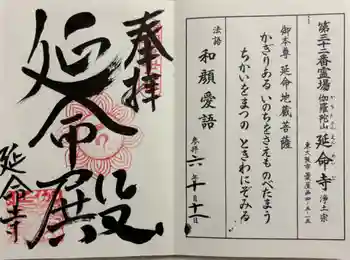 第三十二番霊場
伽羅陀山 延命寺 浄土宗
御本尊 延命地蔵菩薩
かぎりある いのちをさえも のべたまう
ちかいをまつの ときわにぞみる
法語 和顔愛語
参拝 六年十月十一日
奉拝
延命殿
延命寺